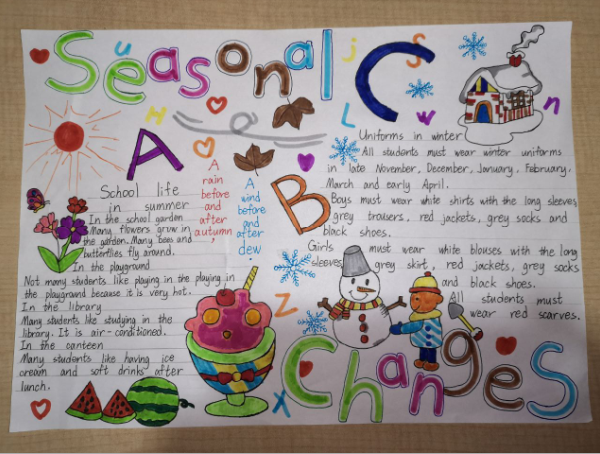 Seasonal
Changes
u
j
S
C
H
L
w
n
A
B
Z
X
School life
in summer
In the school garden
Many flowers grow in
the garden. Many bees and
butterflies fly around.
In the playground
Not many students like playing in the playing in
the playground because it is very hot.
In the library
Many students like studying in the
library. It is air-conditioned.
In the canteen
Many students like having ice
cream and soft drinks after
lunch.
A
rain
before
and
after
autumn,
A
wind
before
and
after
dew.
Uniforms in winter
All students must wear winter uniforms
in late November, December, January, February,
March and early April.
Boys must wear white shirts with the long sleeves,
grey trousers, red jackets, grey socks and
black shoes.
Girls must wear white blouses with the long
sleeves, grey skirt, red jackets, grey socks
and black shoes.
All students must
wear red scarves.